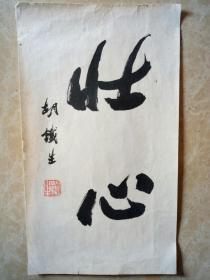 壮心
胡铁生